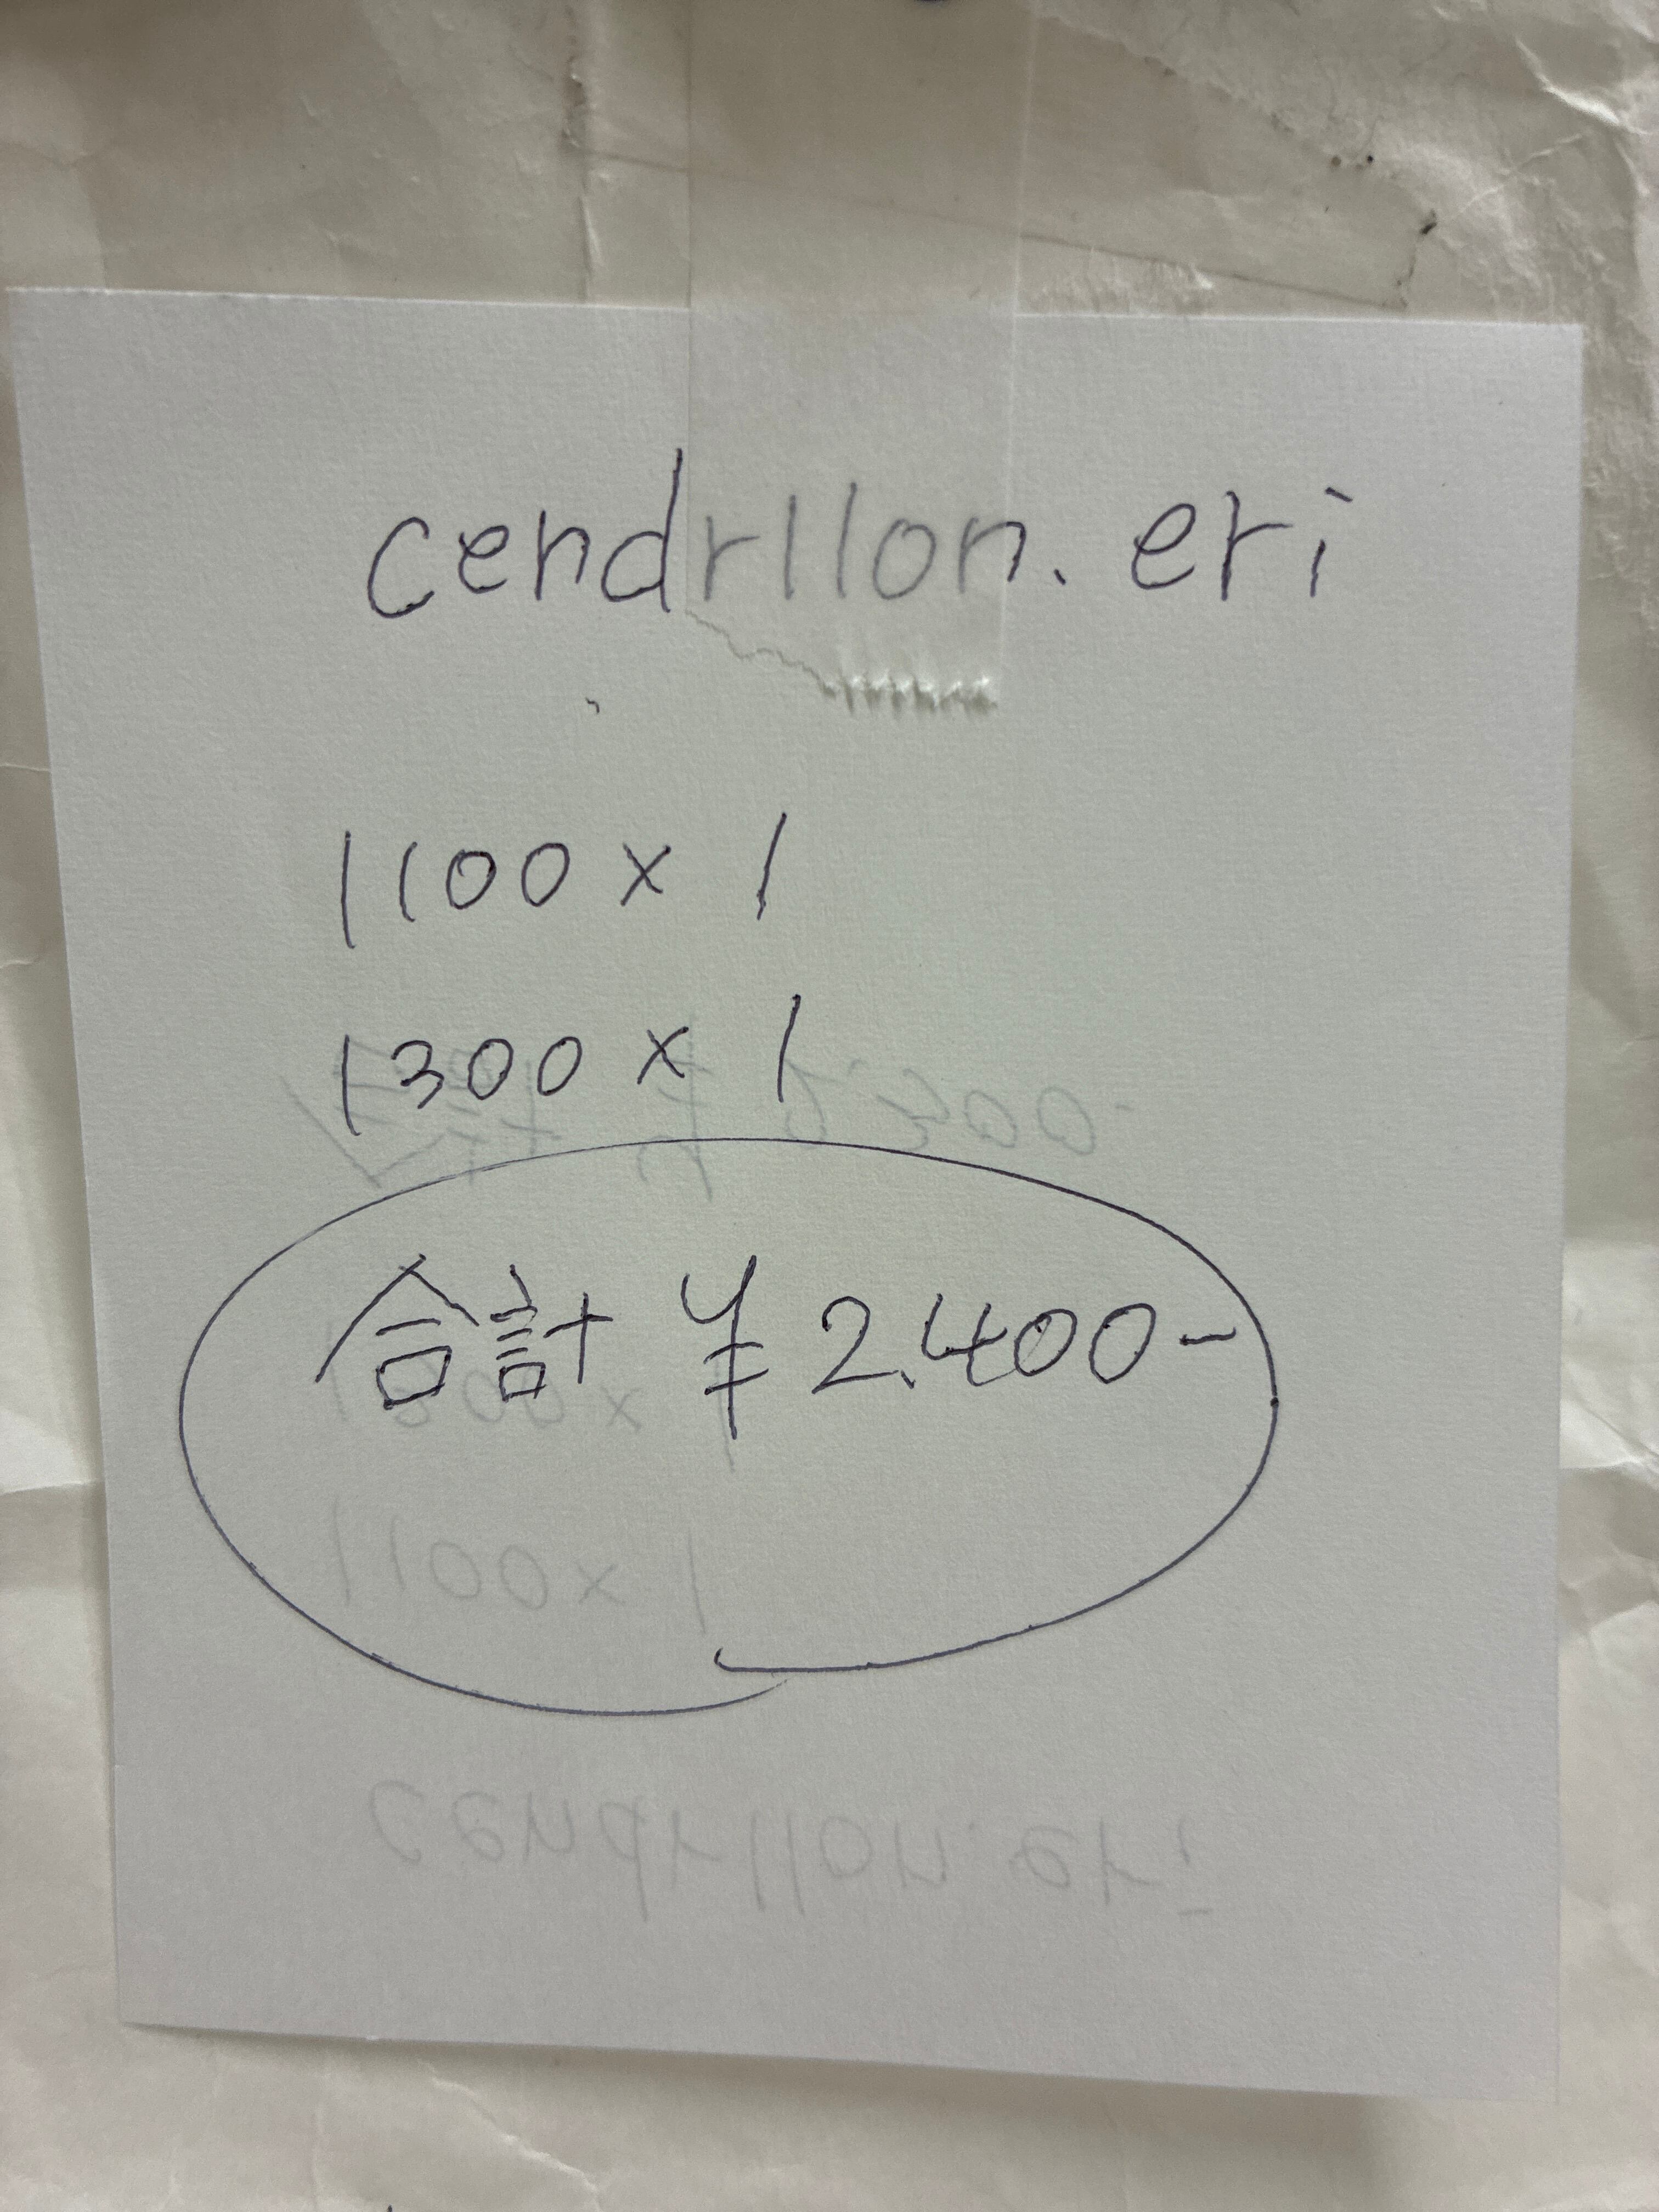 cendrllon.eri
1100 × 1
1300 × 1
合計 ¥2.400-